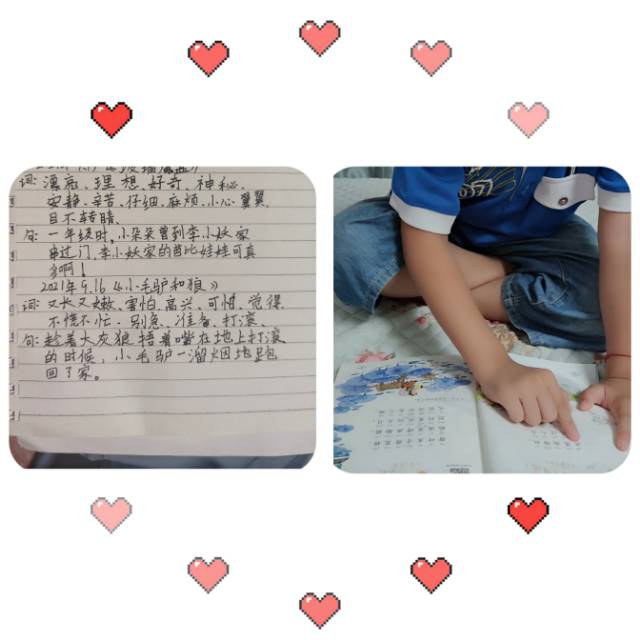 词:漂亮、理想、好奇、神秘、
安静、辛苦、仔细、麻烦、小心翼翼、
目不转睛
句:一年级时,小朵朵曾到李小妖家
串过门,李小妖家的芭比娃娃可真
多啊!
2021年9.16《小毛驴和狼》
词:又长又嫩、害怕、高兴、可惜、觉得、
不慌不忙、别急、准备、打滚、
句:趁着大灰狼捂着嘴在地上打滚
的时候,小毛驴一溜烟地跑
回了家。